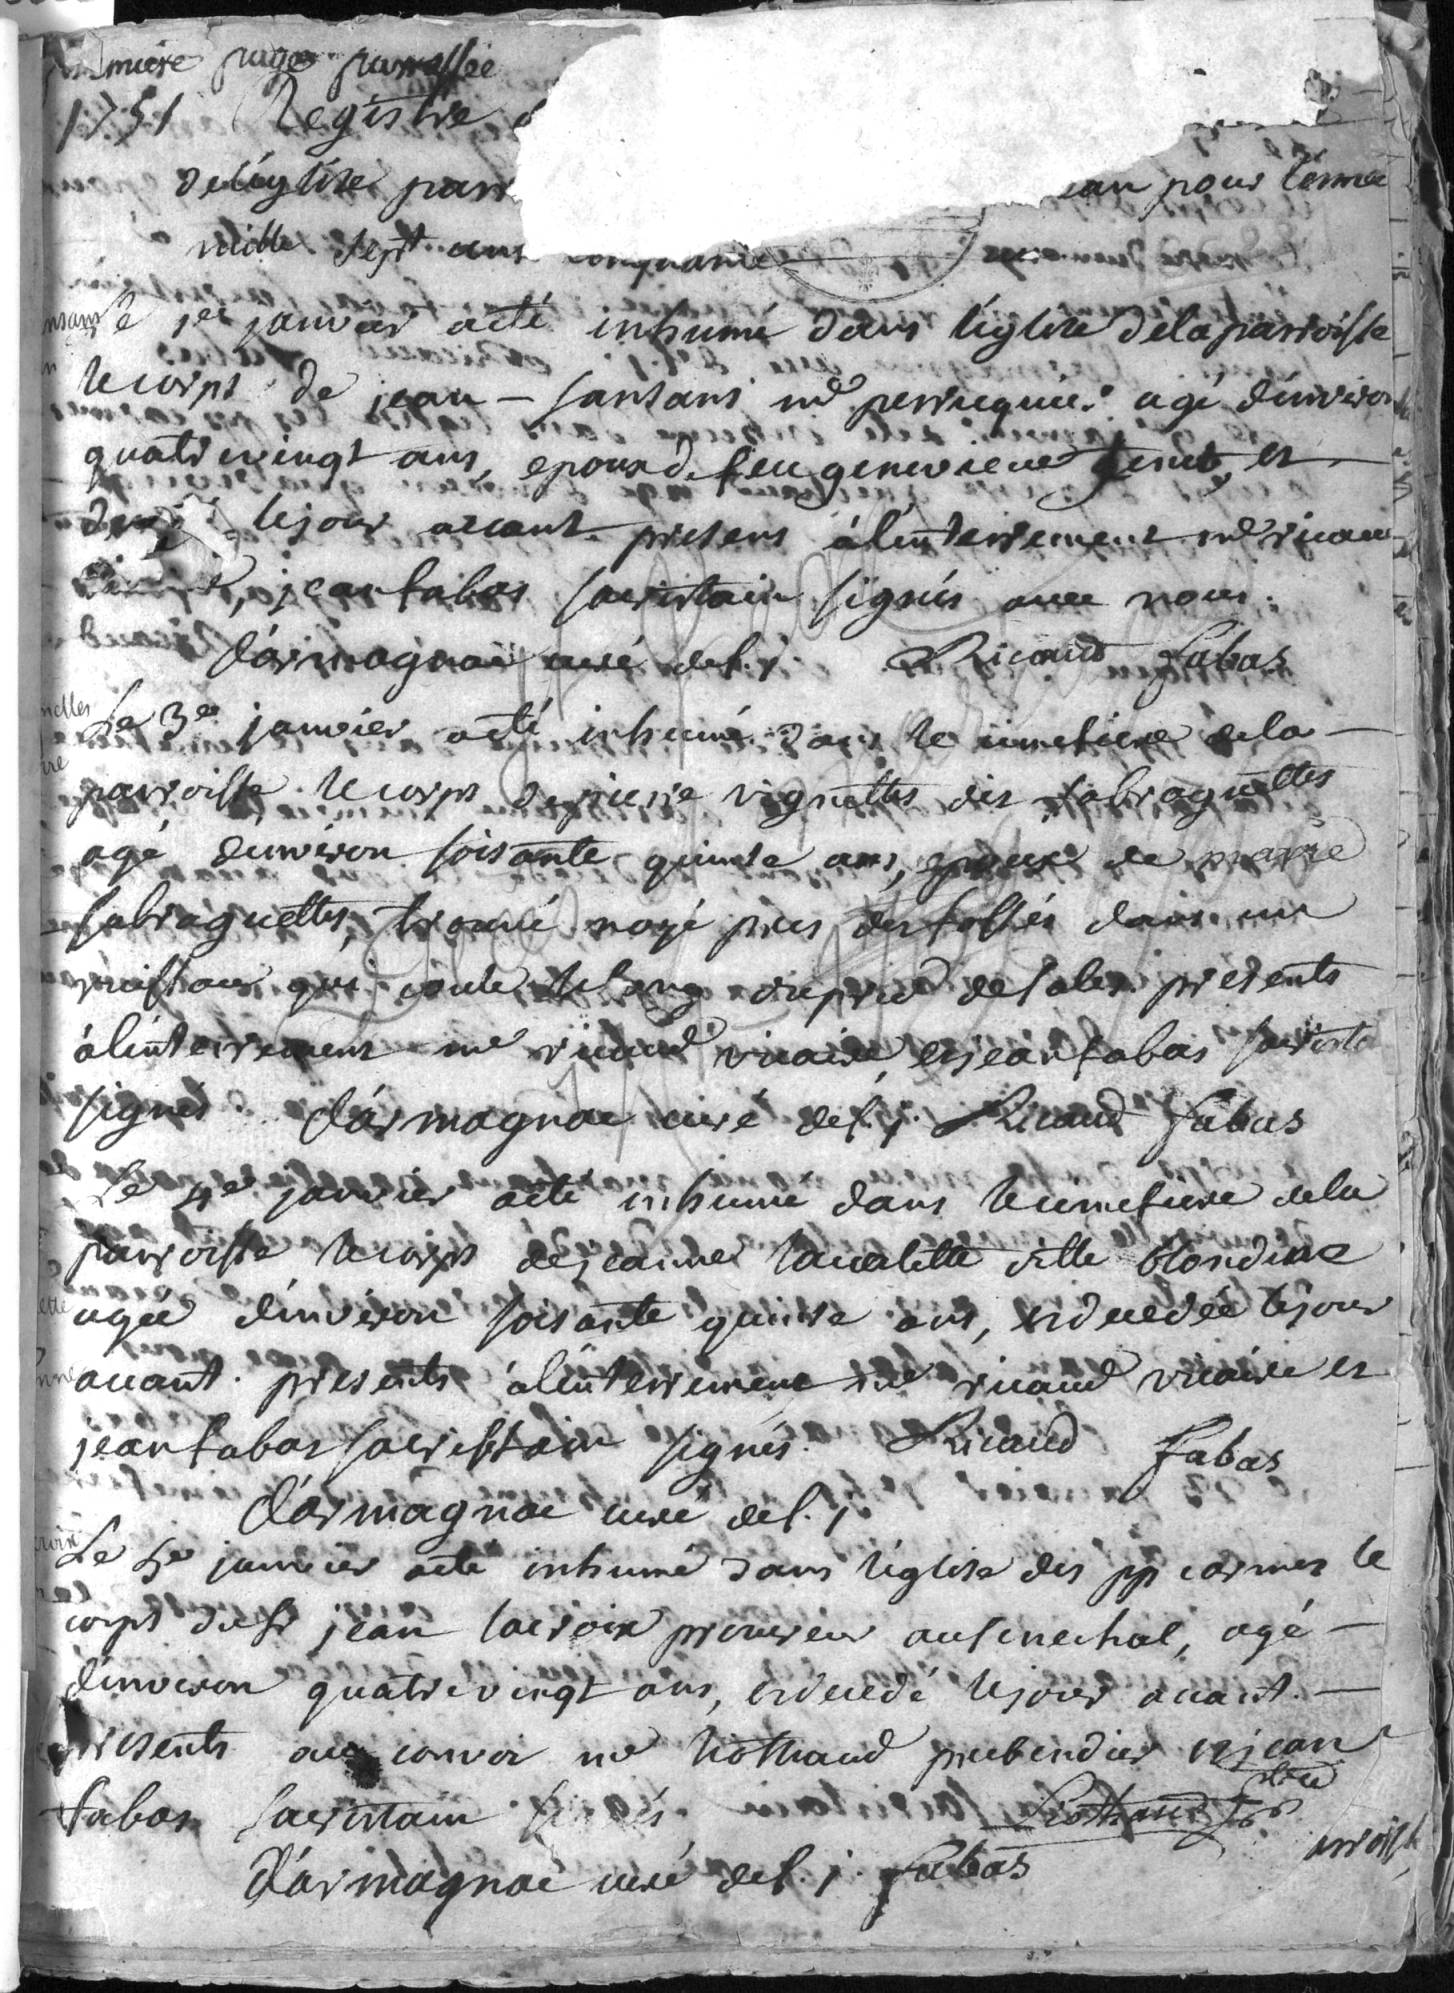 page
1751 Registre
de léglise parr pour lannée
mille sept cens cinquante
Le 1er janvier a eté inhumé dans léglise de la parroisse
le corps de jean - sansans me perruquier agé denviron
quatre vingt ans, epoux de feu genevieve et
le jour avant presens à lenterrement me ricaud
jean fabas sacristain signés avec nous.
Darmagnac curé de s. j. Ricaud fabas
Le 3e janvier a eté inhumé dans le cimetiere de la -
parroisse le corps de pierre vignettes dit sabraguettes
agé denviron soisante quinse ans, epoux de marie
sabraguettes, trouvé noyé pres des fossés dans un
ruisseau qui coule le long du pred de présents
à lenterrement me ricaud vicaire et jean fabas sacrista
signés. Darmagnac curé de s. j. Ricaud fabas
Le 4e janvier a eté inhumé dans le cimetiere de la
parroisse le corps de jeanne lavalette ditte blondine
agée denviron soisante quinse ans, decedée le jour
avant. presents à lenterrement me ricaud vicaire et
jean fabas sacristain signés. Ricaud fabas
Darmagnac curé de s. j.
Le 5e janvier a eté inhumé dans léglise des pp carmes le
corps du sr jean lacroix procureur au senechal, agé -
denviron quatre vingt ans, decedé le jour avant. -
presents au convoi me liothaud prebendier et jean
fabas sacristain signés Liothaud
Darmagnac curé de s. j. fabas